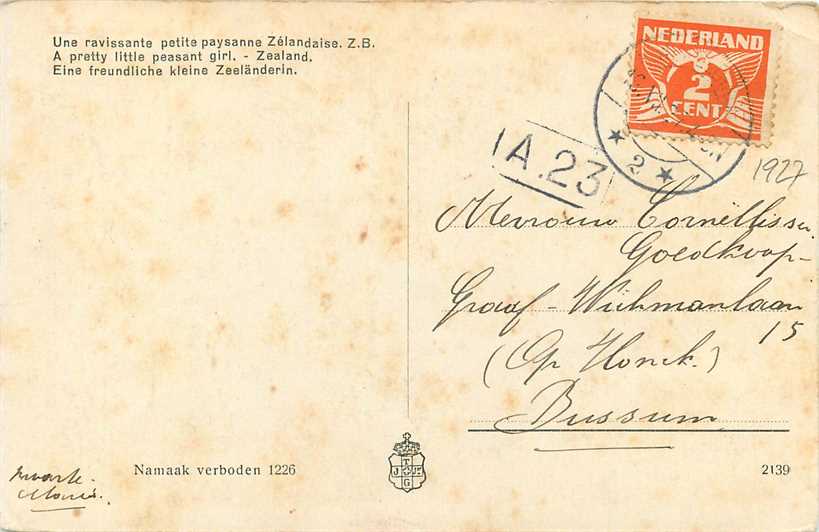 Une ravissante petite paysanne Zélandaise. Z.B.
A pretty little peasant girl. - Zealand.
Eine freundliche kleine Zeeländerin.
NEDERLAND
2
CENT
2
A.23
1927
Mevrouw Cornëllissen
Goedkoop-
Graaf-Wichmanlaan
15
(Op Honck.)
Bussum
T
J
G
Namaak verboden 1226
2139